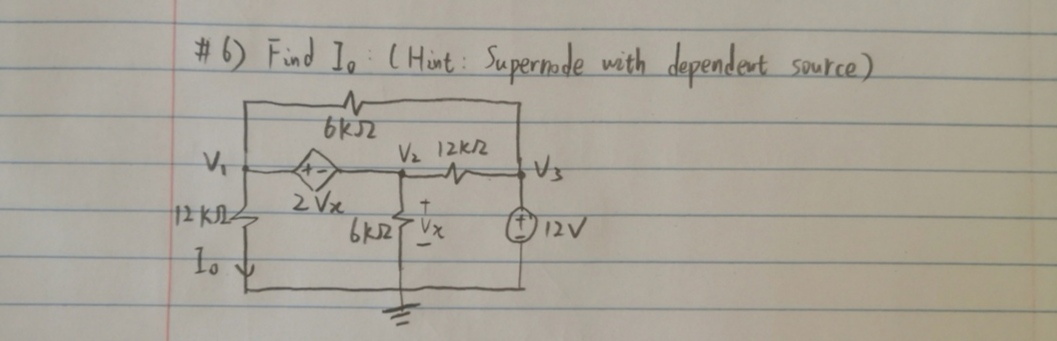 #6) Find I₀: (Hint: Supernode with dependent source)
6kΩ
V₁ + - V₂ 12kΩ V₃
2Vx
12kΩ 6kΩ + Vx - + - 12V
I₀